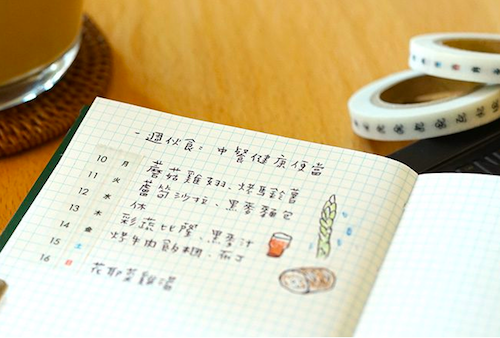 一週伙食：中餐健康便當
10 月 蘑菇雞翅、烤馬鈴薯
11 火 蘆筍沙拉、黑麥麵包
12 水 休
13 木 彩蔬比薩、黑麥汁
14 金 烤牛肉飯糰、布丁
15 土
16 日 花耶菜雞湯